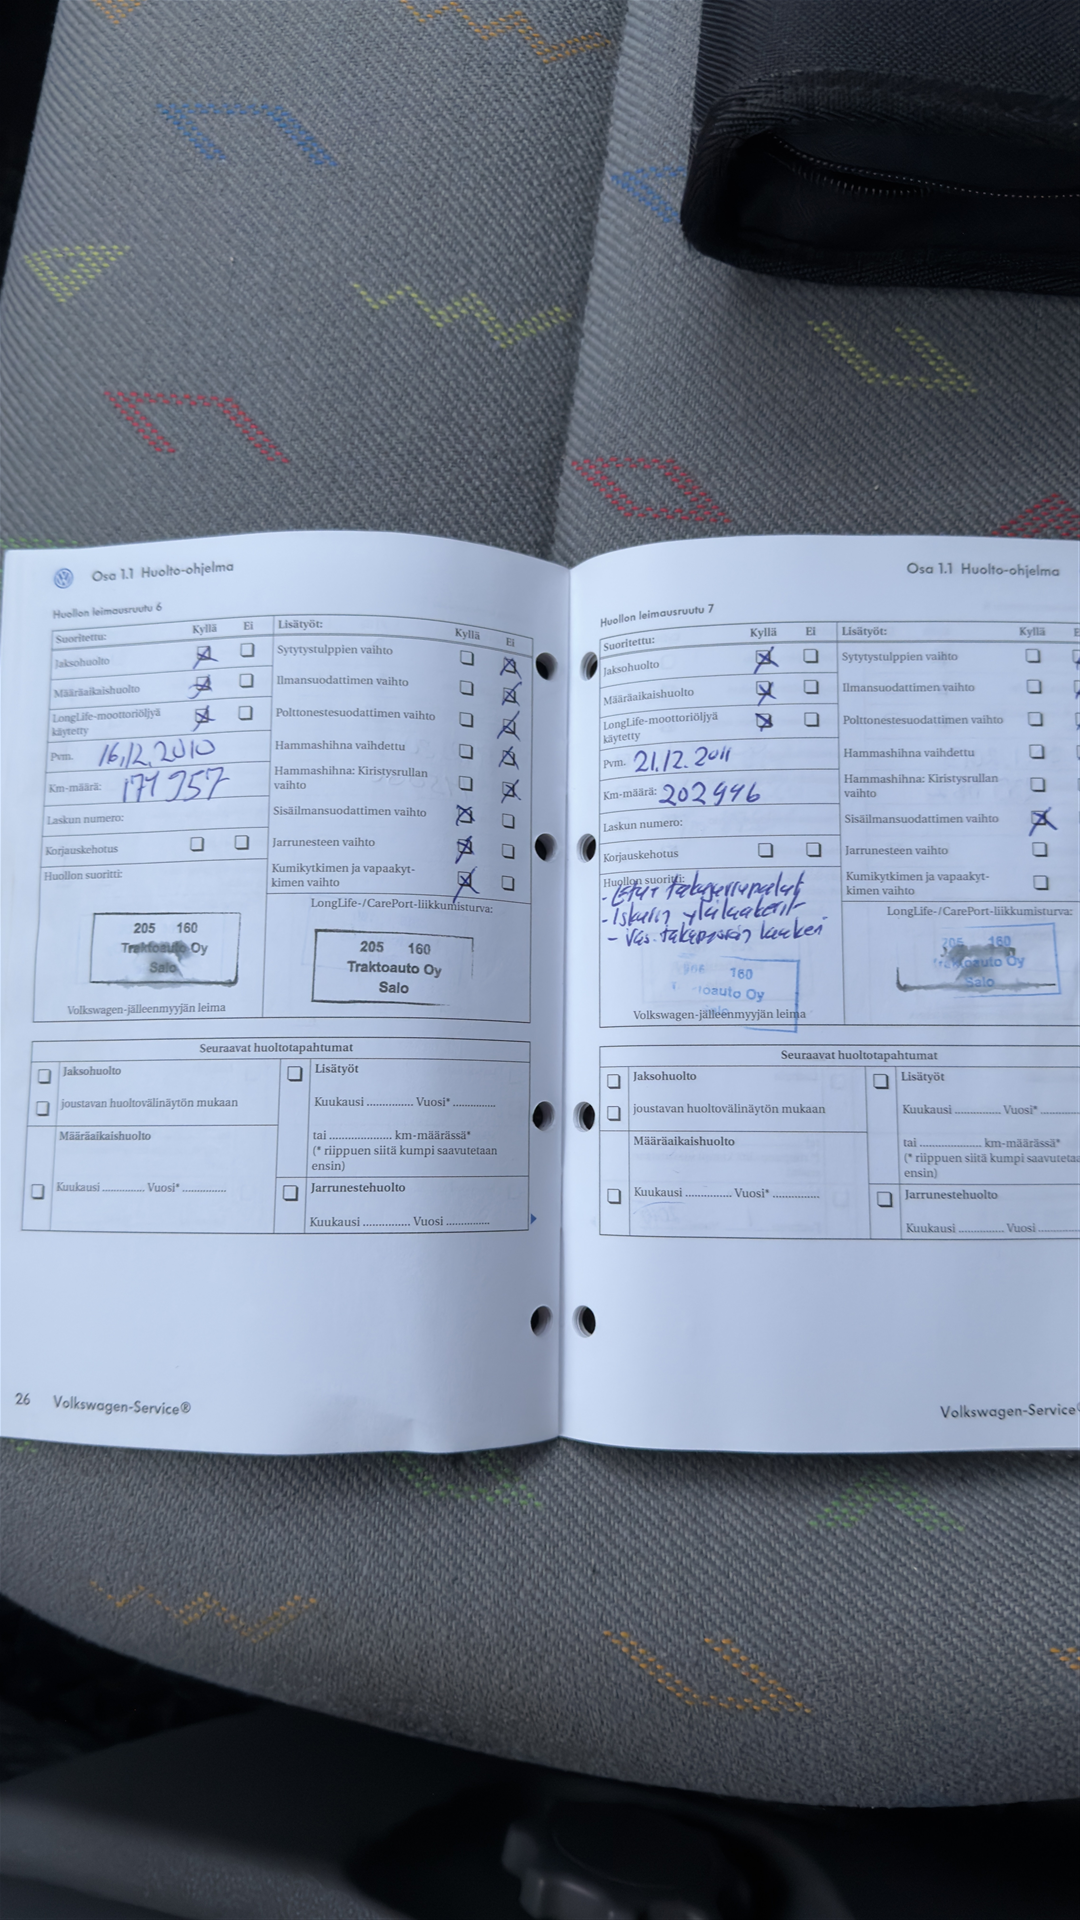 Osa 1.1 Huolto-ohjelma
Huollon leimausruutu 6
Suoritettu: Kyllä Ei
Jaksohuolto
Määräaikaishuolto
LongLife-moottoriöljyä
käytetty
Pvm. 16,12,2010
Km-määrä: 171 957
Laskun numero:
Korjauskehotus
Huollon suoritti:
205 160
Traktoauto Oy
Salo
Volkswagen-jälleenmyyjän leima
Lisätyöt: Kyllä Ei
Sytytystulppien vaihto
Ilmansuodattimen vaihto
Polttonestesuodattimen vaihto
Hammashihna vaihdettu
Hammashihna: Kiristysrullan
vaihto
Sisäilmansuodattimen vaihto
Jarrunesteen vaihto
Kumikytkimen ja vapaakyt-
kimen vaihto
LongLife-/CarePort-liikkumisturva:
205 160
Traktoauto Oy
Salo
Seuraavat huoltotapahtumat
Jaksohuolto
joustavan huoltovälinäytön mukaan
Määräaikaishuolto
Kuukausi .............. Vuosi* ..............
Lisätyöt
Kuukausi .............. Vuosi* ..............
tai .................... km-määrässä*
(* riippuen siitä kumpi saavutetaan
ensin)
Jarrunestehuolto
Kuukausi .............. Vuosi ..............
26 Volkswagen-Service®
Osa 1.1 Huolto-ohjelma
Huollon leimausruutu 7
Suoritettu: Kyllä Ei
Jaksohuolto
Määräaikaishuolto
LongLife-moottoriöljyä
käytetty
Pvm. 21.12.2011
Km-määrä: 202946
Laskun numero:
Korjauskehotus
Huollon suoritti:
- Etu+ takajarrupalat
- Iskarin ylälaakerit
- Vas. takapyörän laakeri
160
Volkswagen-jälleenmyyjän leima
Lisätyöt: Kyllä
Sytytystulppien vaihto
Ilmansuodattimen vaihto
Polttonestesuodattimen vaihto
Hammashihna vaihdettu
Hammashihna: Kiristysrullan
vaihto
Sisäilmansuodattimen vaihto
Jarrunesteen vaihto
Kumikytkimen ja vapaakyt-
kimen vaihto
LongLife-/CarePort-liikkumisturva:
205 160
Traktoauto Oy
Salo
Seuraavat huoltotapahtumat
Jaksohuolto
joustavan huoltovälinäytön mukaan
Määräaikaishuolto
Kuukausi .............. Vuosi* ..............
Lisätyöt
Kuukausi .............. Vuosi* ..............
tai .................... km-määrässä*
(* riippuen siitä kumpi saavutetaa
ensin)
Jarrunestehuolto
Kuukausi .............. Vuosi ..............
Volkswagen-Service